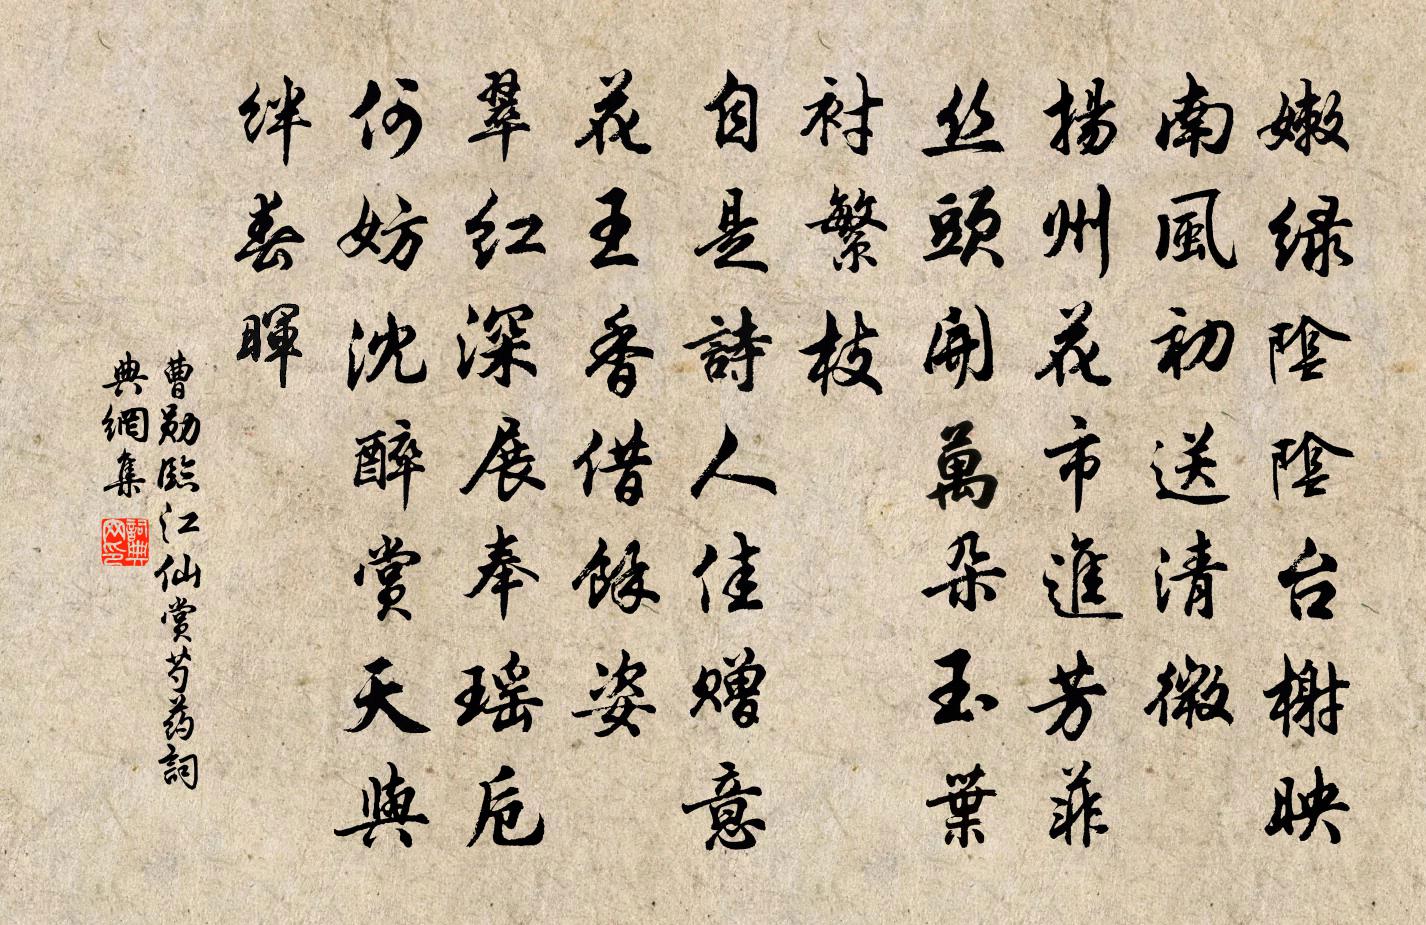 嫩绿陰陰台榭映
南風初送清微
揚州花市進芳菲
丝頭開萬朵玉葉
衬繁枝
自是詩人佳赠意
花王香借餘姿
翠红深展奉瑶卮
何妨沈醉賞天與
絆春暉
曹勛臨江仙赏芍药詞
典網集
詞典网印